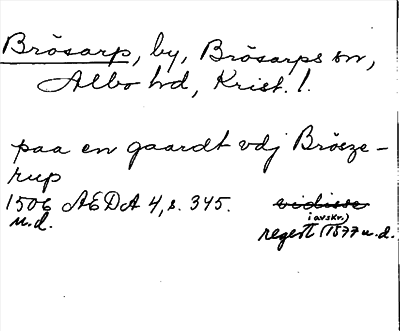 Brösarp, by, Brösarps sn,
Albo hd, Krist. l.
paa en gaardt vdj Brösze-
rup
1506 AEDA 4, s. 345. vidisse
u.d. i avskr.)
regest (1577 u.d.